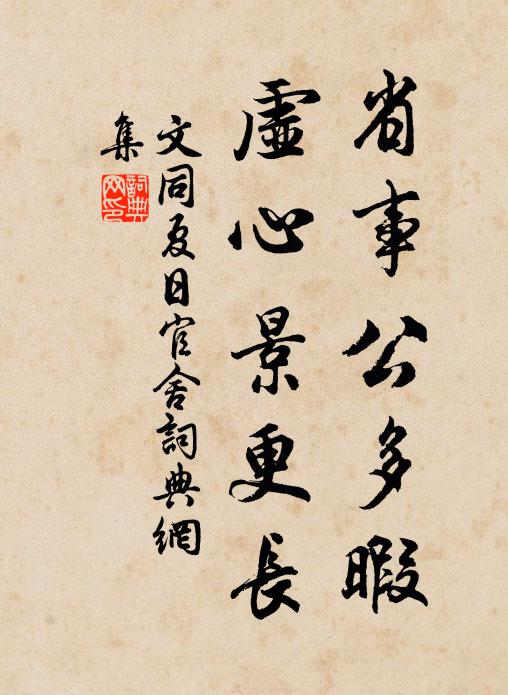 省事公多暇
虛心景更長
文同夏日官舍詞典網
集
詞典
网印